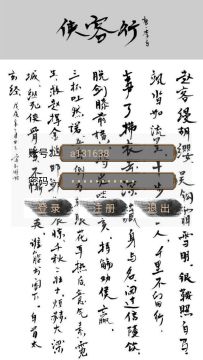 侠客行
唐 李白
赵客缦胡缨 吴钩霜雪明 银鞍照白马
飒沓如流星 十步杀一人 千里不留行
事了拂衣去 深藏身与名 闲过信陵饮
脱剑膝前横 持觞劝侯嬴
三杯吐然诺 眼花耳热后意气素霓
生救赵挥金 千秋二壮士烜赫大梁
城纵死侠骨香 谁能书阁下白首太
玄经
账号
a131638
密码
登录
注册
退出